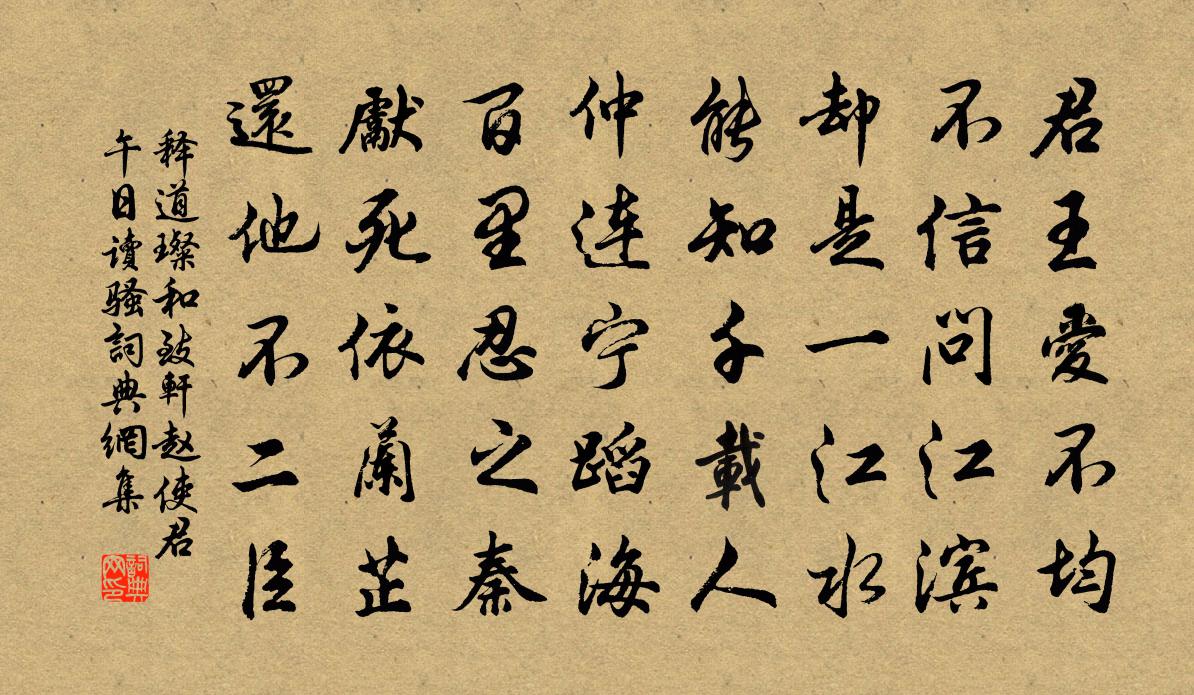 君王愛不均
不信問江滨
却是一江水
能知千載人
仲連宁蹈海
百里忍之秦
獻死依蘭芷
還他不二臣
释道璨和致軒赵使君
午日讀騷詞典網集
詞典网印